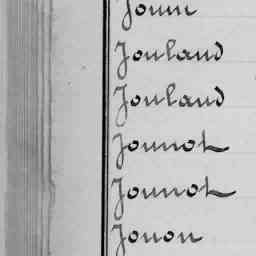 Jouin
Jouland
Jouland
Jounot
Jounot
Jouon